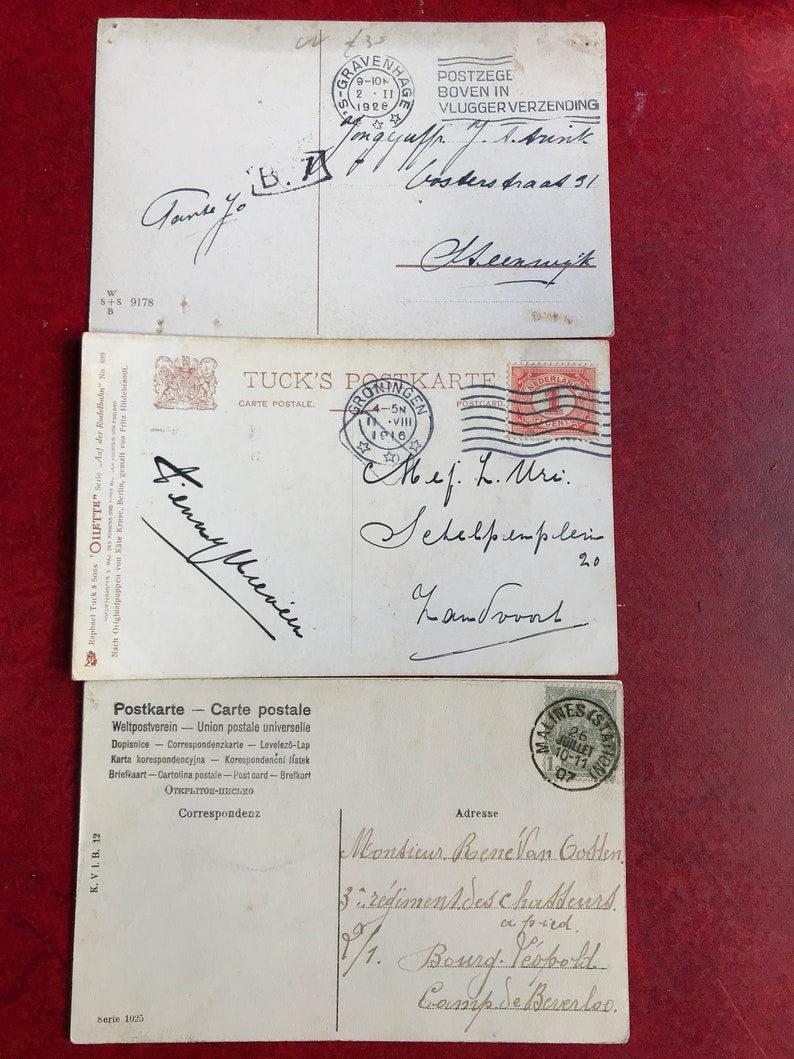 'S-GRAVENHAGE
9-10N
2 · II
1928
POSTZEGE
BOVEN IN
VLUGGER VERZENDING
Jongejuffr. J. A.
Oosterstraat 31
Steenwijk
B.
Tante Jo
W
S+S 9178
B
TUCK'S POSTKARTE
CARTE POSTALE.
POSTCARD.
GRONINGEN
4-5N
11 · VIII
1916
NEDERLAND
1
CENT
Raphael Tuck & Sons "OILETTE" Serie „Auf der Rodelbahn" No. 889
Nach Originalpuppen von Käte Kruse, Berlin, gemalt von Fritz Hildebrandt.
Mej. L. Uri.
Schelpenplein
20
Zandvoort
Postkarte — Carte postale
Weltpostverein — Union postale universelle
Dopisnice — Correspondenzkarte — Levelező-Lap
Karta korespondencyjna — Korespondenční lístek
Briefkaart — Cartolina postale — Post card — Brefkort
Открытое-письмо
Correspondenz
Adresse
MALINES (STATION)
26
JUILLET
10-11
07
1
K. V i. B. 12
Monsieur René Van Oosten
3e régiment des chasseurs
a pied.
2/1.
Bourg-Léopold
Camp de Beverloo
Serie 1025